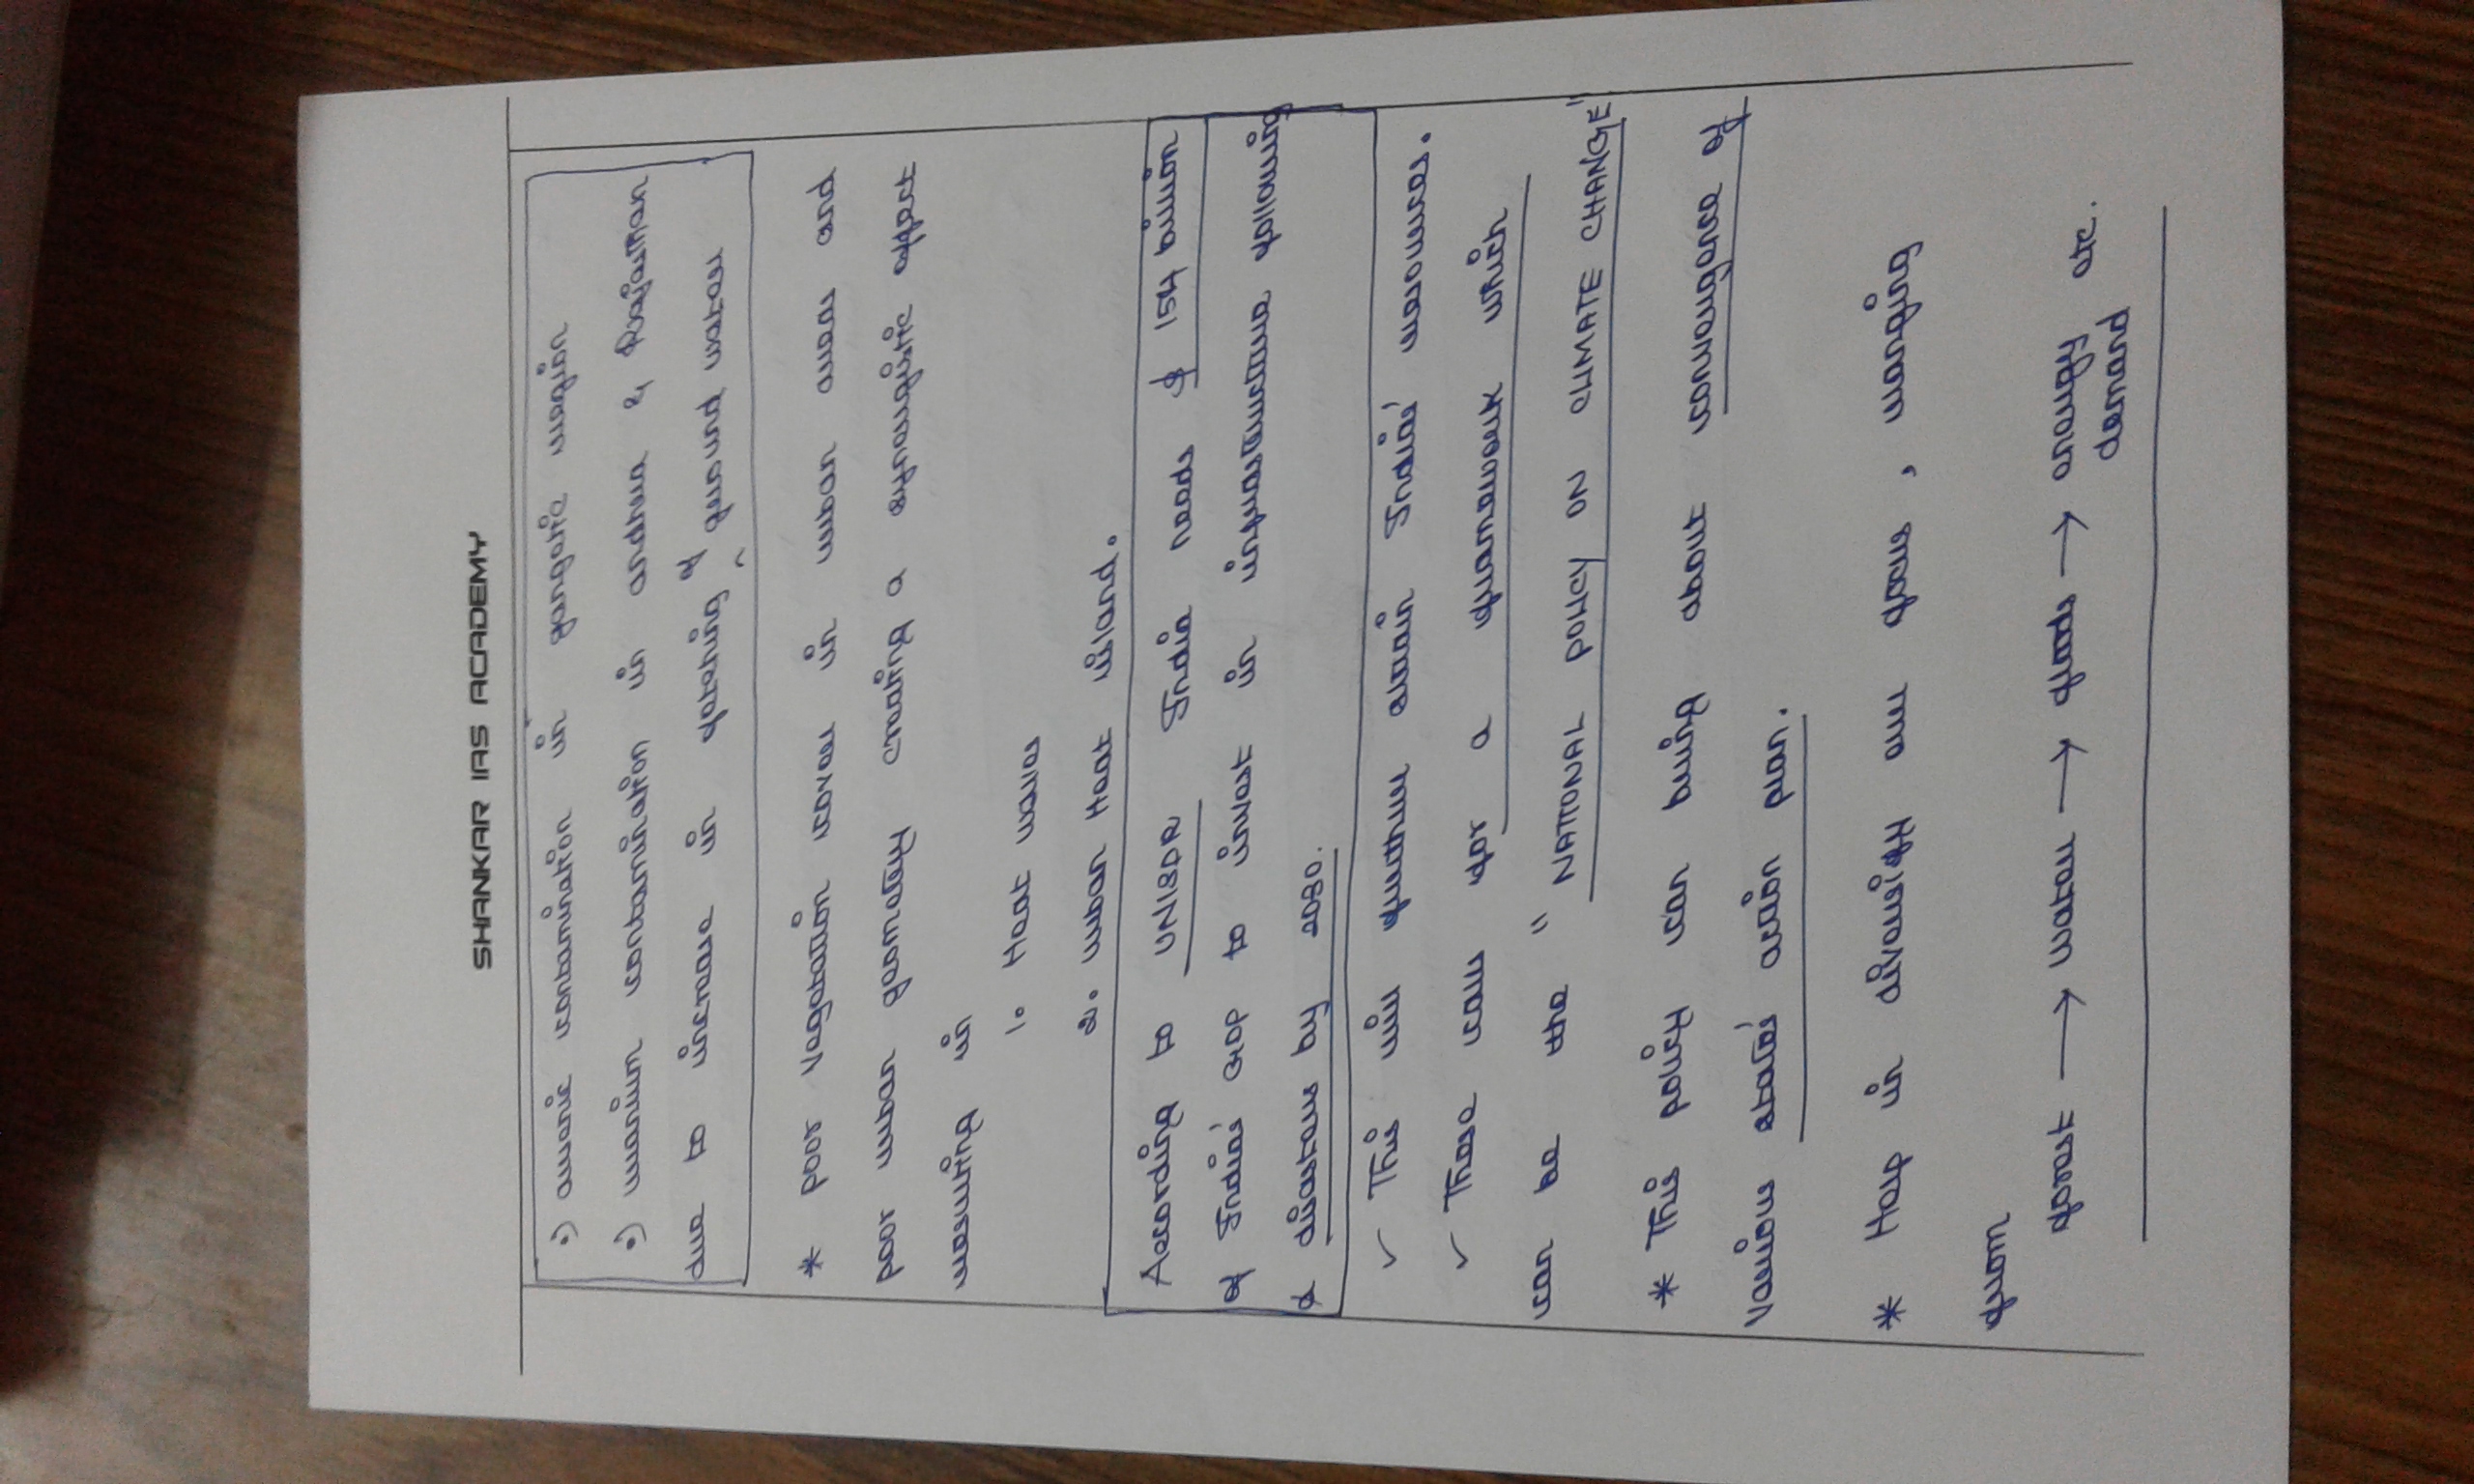 SHANKAR IAS ACADEMY
•) arsenic contamination in gangetic region
•) uranium contamination in andhra & Rajasthan
due to increase in fetching of ground water
* poor vegetation cover in urban areas and
poor urban geometry creating a synergistic effect
resulting in
1. Heat wave
2. urban Heat island.
According to UNISDR India needs $ 154 billion
of India's GDP to invest in infrastructure following
disasters by 2030.
✓ This will further strain India's resources.
✓ These calls for a framework which
can be the " NATIONAL POLICY ON CLIMATE CHANGE"
* This policy can bring about convergence of
various states' action plan.
* Help in diversify our focus, ranging
from
forest → water → floods → energy etc.
demand